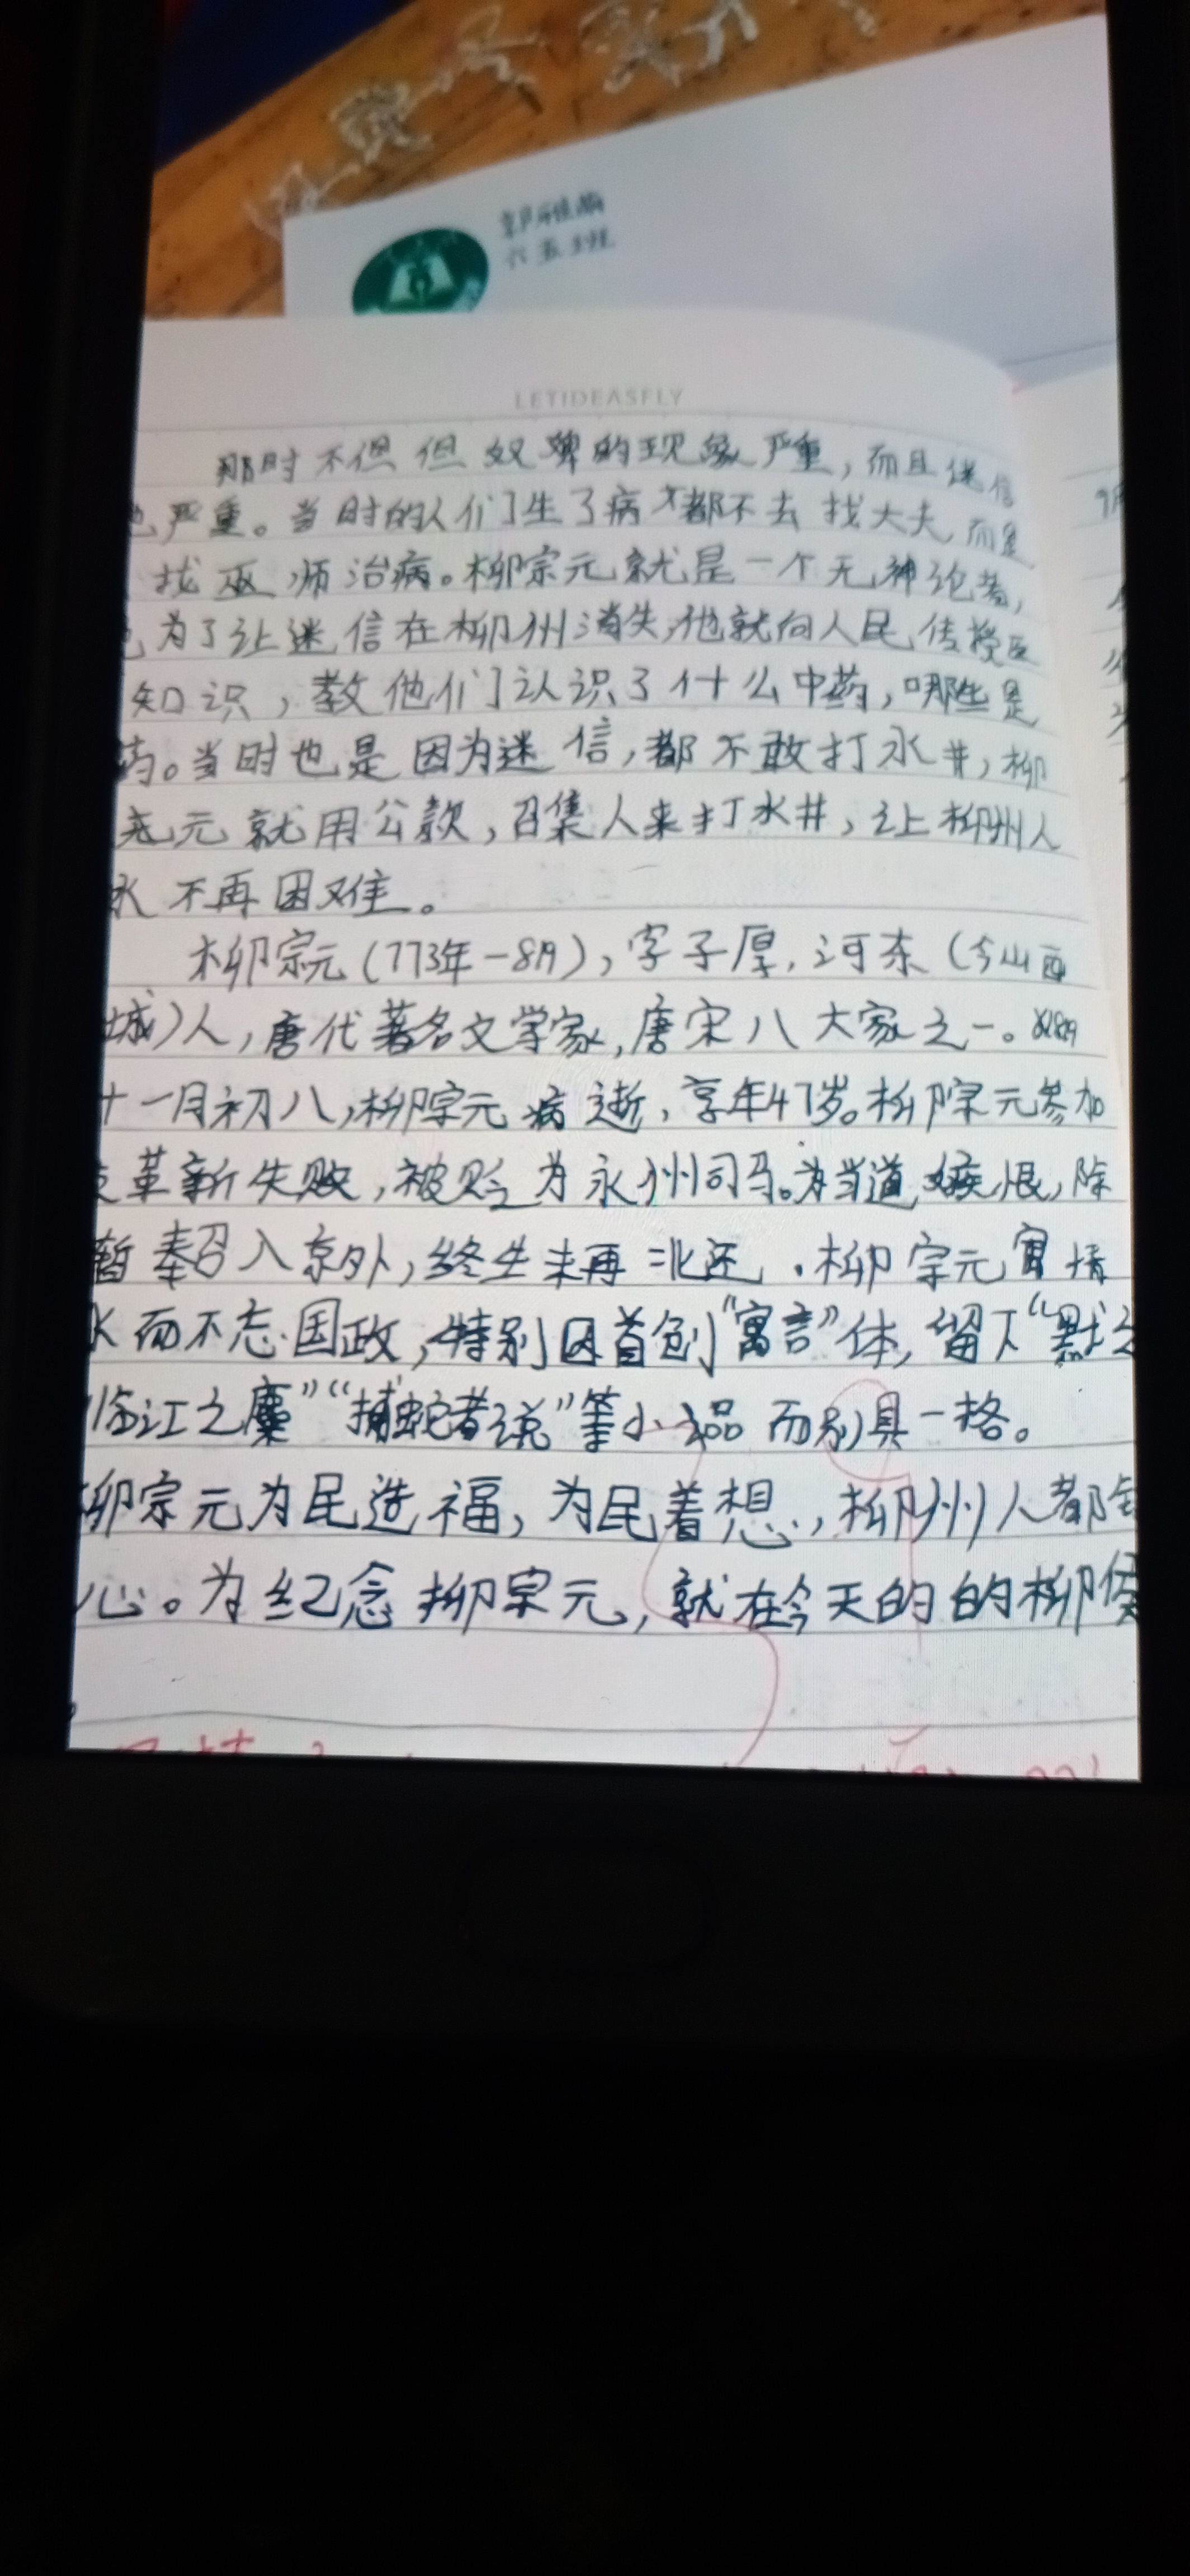 六五班
LETIDEASFLY
那时不但但奴婢的现象严重，而且迷信
也严重。当时的人们生了病才都不去找大夫，而是
找巫师治病。柳宗元就是一个无神论者，
为了让迷信在柳州消失，他就向人民传授医
知识，教他们认识了什么中药，哪些是
药。当时也是因为迷信，都不敢打水井，柳
元就用公款，召集人来打水井，让柳州人
水不再困难。
柳宗元（773年－8月），字子厚，河东（今山西
城）人，唐代著名文学家，唐宋八大家之一。
十一月初八，柳宗元病逝，享年47岁。柳宗元参加
革新失败，被贬为永州司马。为当道嫉恨，除
暂奉召入京外，终生未再北还．柳宗元寓情
水而不忘国政，特别因首创“寓言”体，留下“黔之
临江之麋”“捕蛇者说”等小品而别具一格。
柳宗元为民造福，为民着想，柳州人都
心。为纪念柳宗元，就在今天的的柳侯